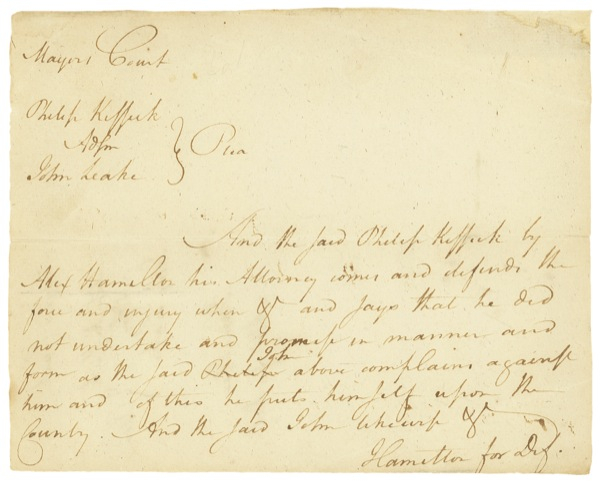 Mayors Court
Philip Kissick
Adsm
John Leake
Plea
And the said Philip Kissick by
Alex Hamilton his Attorney comes and defends the
force and injury when &c and says that he did
not undertake and promise in manner and
John
form as the said Philip above complains against
him and of this he puts himself upon the
Country. And the said John likewise &c
Hamilton for Def.